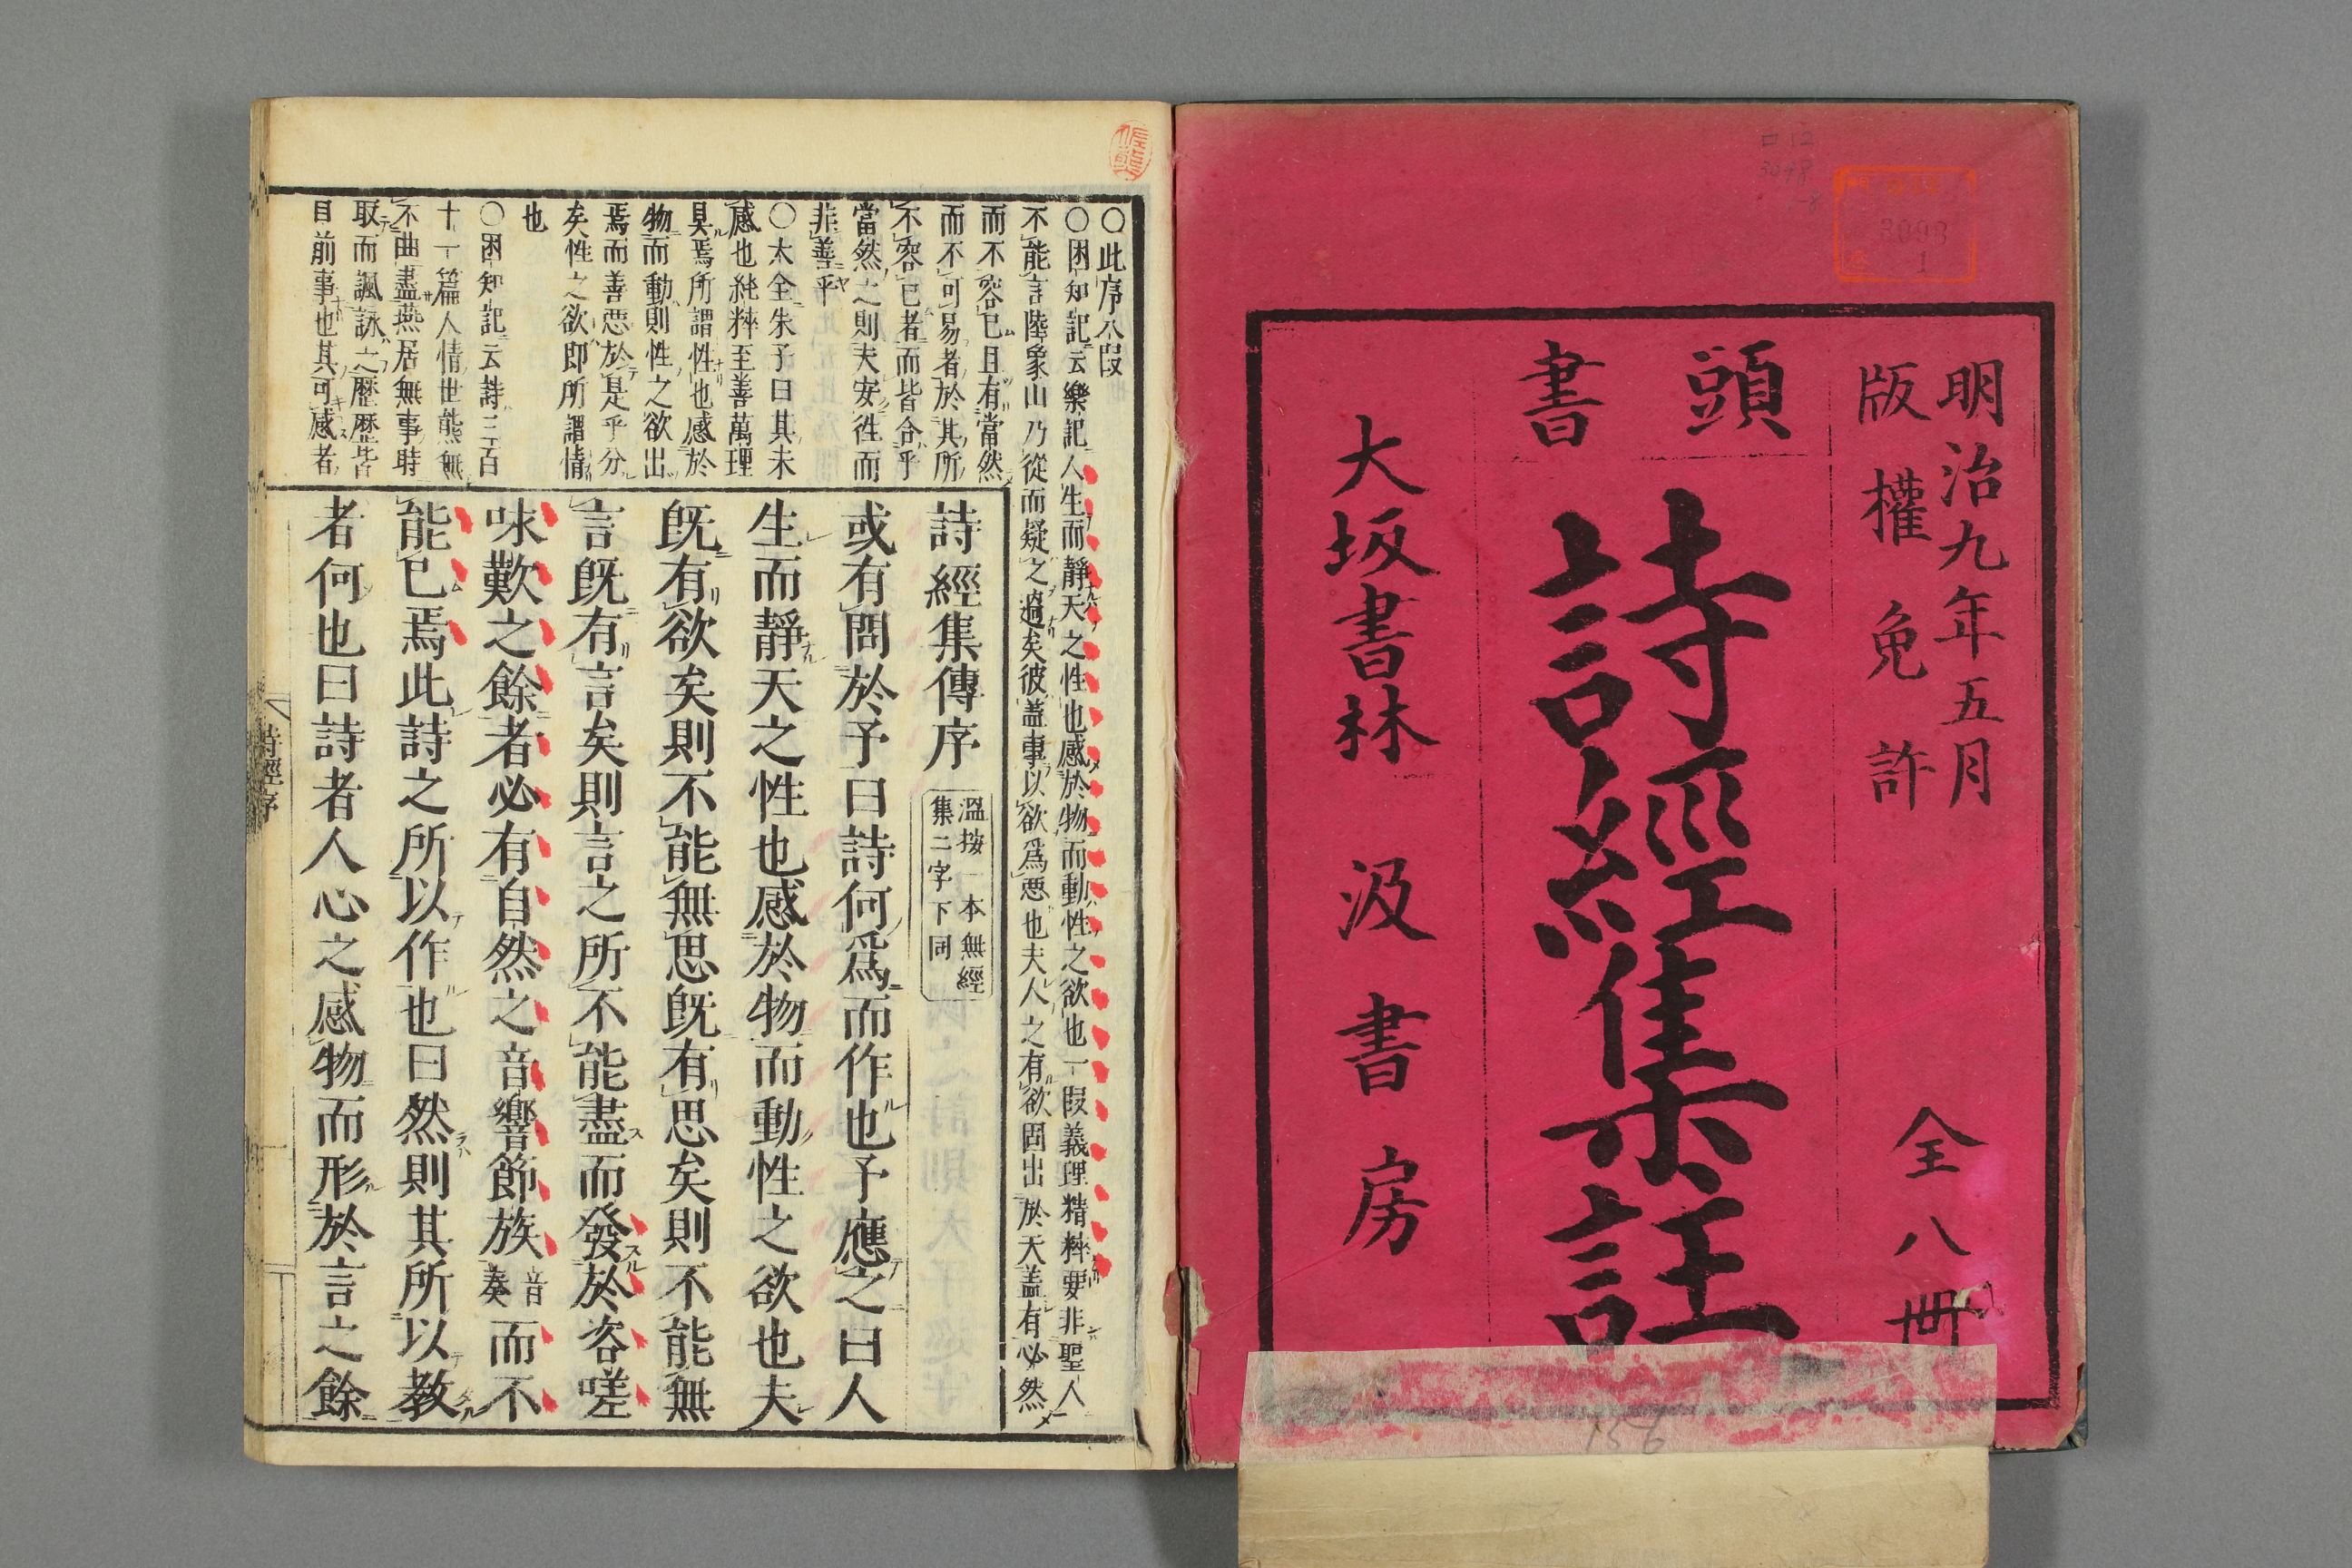 明治九年五月
版權免許
全八冊
頭書
詩經集註
大坂書林 汲書房
3098
1
156
○此序八段
○困知記云樂記人生而靜天之性也感於物而動性之欲也一段義理精粹要非聖人
不能言陸象山乃從而疑之過矣彼蓋專以欲爲惡也夫人之有欲固出於天蓋有必然
而不容已且有當然
而不可易者於其所
不容已者而皆合乎
當然之則夫安往而
非善乎
○大全朱子曰其未
感也純粹至善萬理
具焉所謂性也感於
物而動則性之欲出
焉而善惡於是乎分
矣性之欲卽所謂情
也
○困知記云詩三百
十一篇人情世態無
不曲盡燕居無事時
取而諷詠之歷歷皆
目前事也其可感者
詩經集傳序
溫按一本無經
集二字下同
或有問於予曰詩何爲而作也予應之曰人
生而靜天之性也感於物而動性之欲也夫
旣有欲矣則不能無思旣有思矣則不能無
言旣有言矣則言之所不能盡而發於咨嗟
咏歎之餘者必有自然之音響節族音奏而不
能已焉此詩之所以作也曰然則其所以教
者何也曰詩者人心之感物而形於言之餘
詩經序